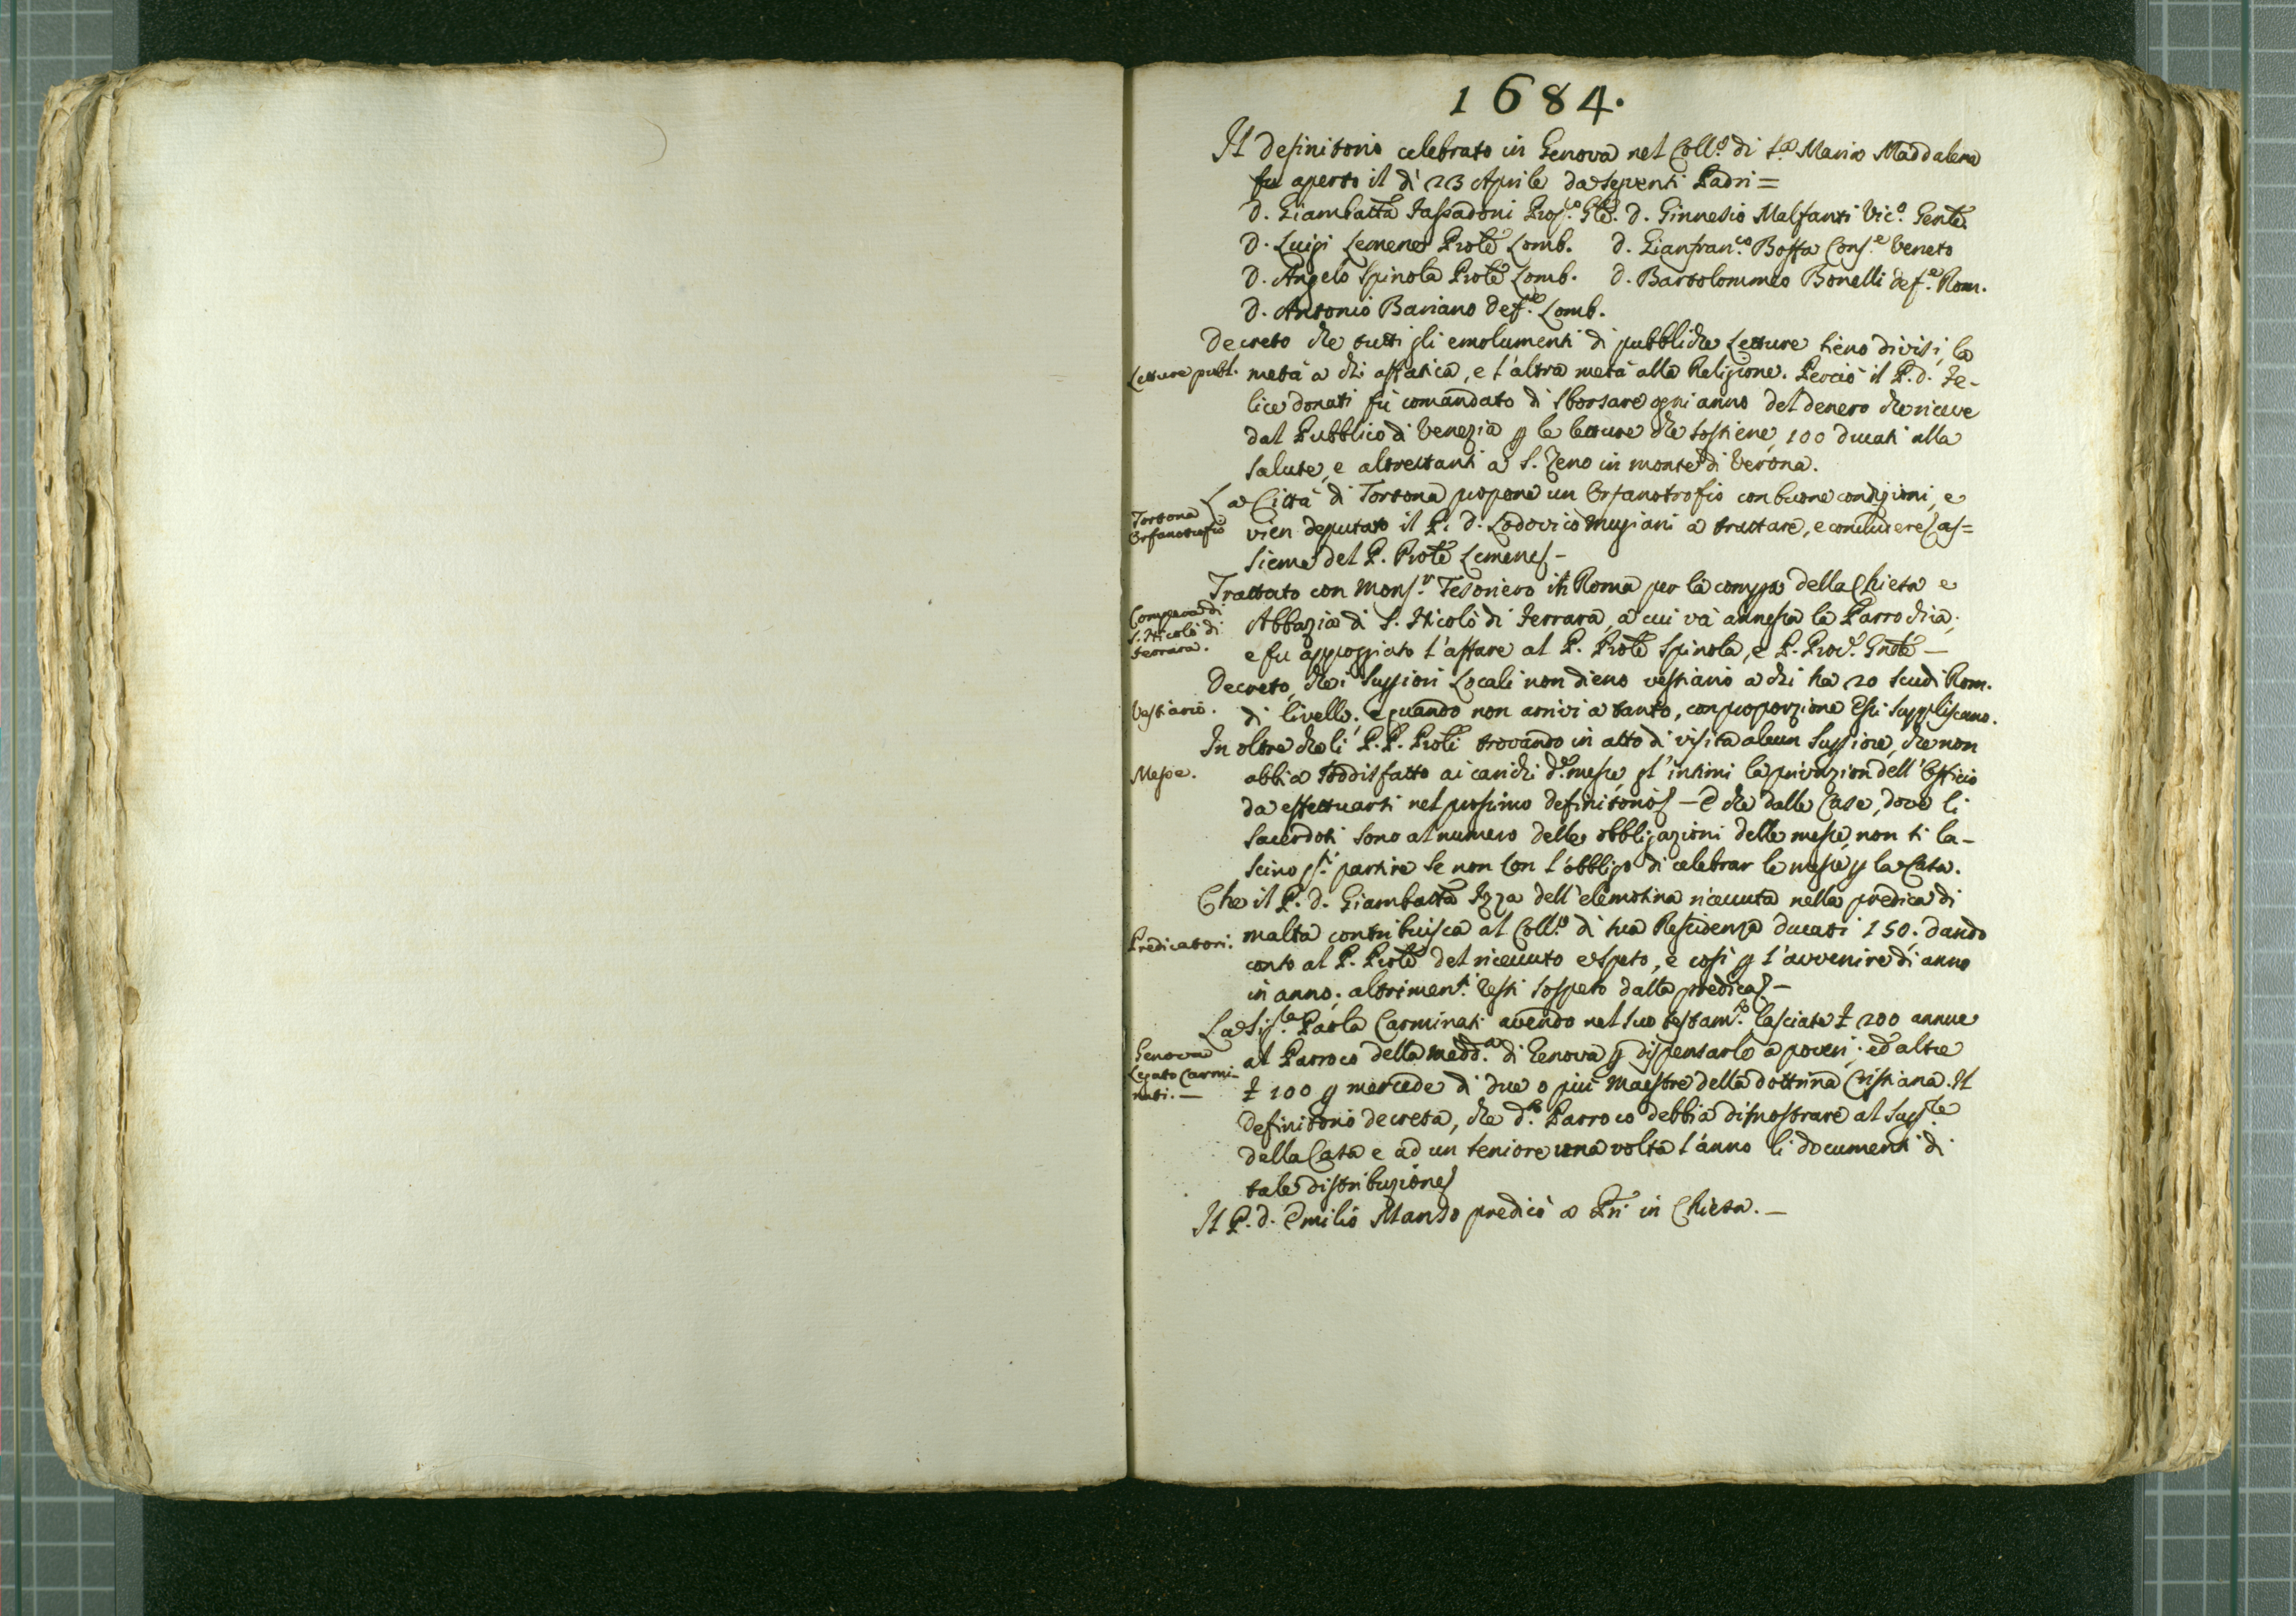 1684.
Il Definitorio celebrato in Genova nel Coll.o di S.a Maria Maddalena
fu aperto il dì 23 Aprile da seguenti Padri =
D. Giambatta Prof.o Gle. D. Ginnesio Malfanti Vic.o Genle.
D. Luigi Lemene Prole Lomb. D. Gianfran.co Bossa Cons.e Veneto
D. Angelo Spinola Prole Lomb. D. Bartolommeo Bonelli Def.e Rom.
D. Antonio Bariano Def.re Lomb.
Decreto che tutti gli emolumenti di pubbliche Letture sieno divisi, la
Letture publ.
metà a chi affatica, e l'altra metà alla Religione. Perciò il P. D. Fe-
lice Donati fù comandato di sborsare ogni anno del denero che riceve
dal Pubblico di Venezia p le letture che sostiene, 100 ducati alla
Salute, e altrettanti a S. Zeno in monte di Verona.
La Città di Tortona propone un Orfanotrofio con buone condizioni, e
Tortona
Orfanotrofio
vien deputato il P. D. Lodovico Mugiani a trattare, e concludere as=
sieme del P. Prole Lemene -
Trattato con Mons.r Tesoriero in Roma per la compra della Chiesa e
Compera di
S. Nicolò di
Ferrara.
Abbazia di S. Nicolò di Ferrara, a cui và annessa la Parrochia;
e fu appoggiato l'affare al P. Prole Spinola, e P. Prod. Gnle -
Decreto, che i Suppiori Locali non dieno vestiario a chi ha 20 scudi Rom.
Vestiario.
di livello; e quando non arrivi a tanto, con proporzione Essi suppliscano.
In oltre che li P.P. Proli trovando in atto di visita alcun Suppiore, che non
Messe.
abbia soddisfatto ai carichi d. messe, gl'intimi la privazion dell'Officio
da effettuarsi nel prossimo Definitorio - E che dalle Case, dove li
Sacerdoti sono al numero delle obbligazioni delle messe, non si la-
scino partire se non con l'obbligo di celebrar le messe p la Casa.
Che il P. D. Giambatta Izza dell'elemosina ricevuta nella predica di
Predicatori.
Malta contribuisca al Coll.o di sua Residenza ducati 150. dando
conto al P. Prole del ricevuto e speso, e così p l'avvenire di anno
in anno; altrimen.ti resti sospeso dalla predica -
La Sig.ra Paola Carminati avendo nel suo testam.to lasciate £ 200 annue
Genova
Legato Carmi-
nati. -
al Parroco della Madd.a di Genova p dispensarlo a poveri; ed altre
£ 100 p mercede di due o più Maestre della dottrina Cristiana. Il
Definitorio decreta, che d.o Parroco debbia dimostrare al Supp.re
della Casa e ad un seniore una volta l'anno li documenti di
tale distribuzione
Il P. D. Emilio Manso predicò a in Chiesa. -